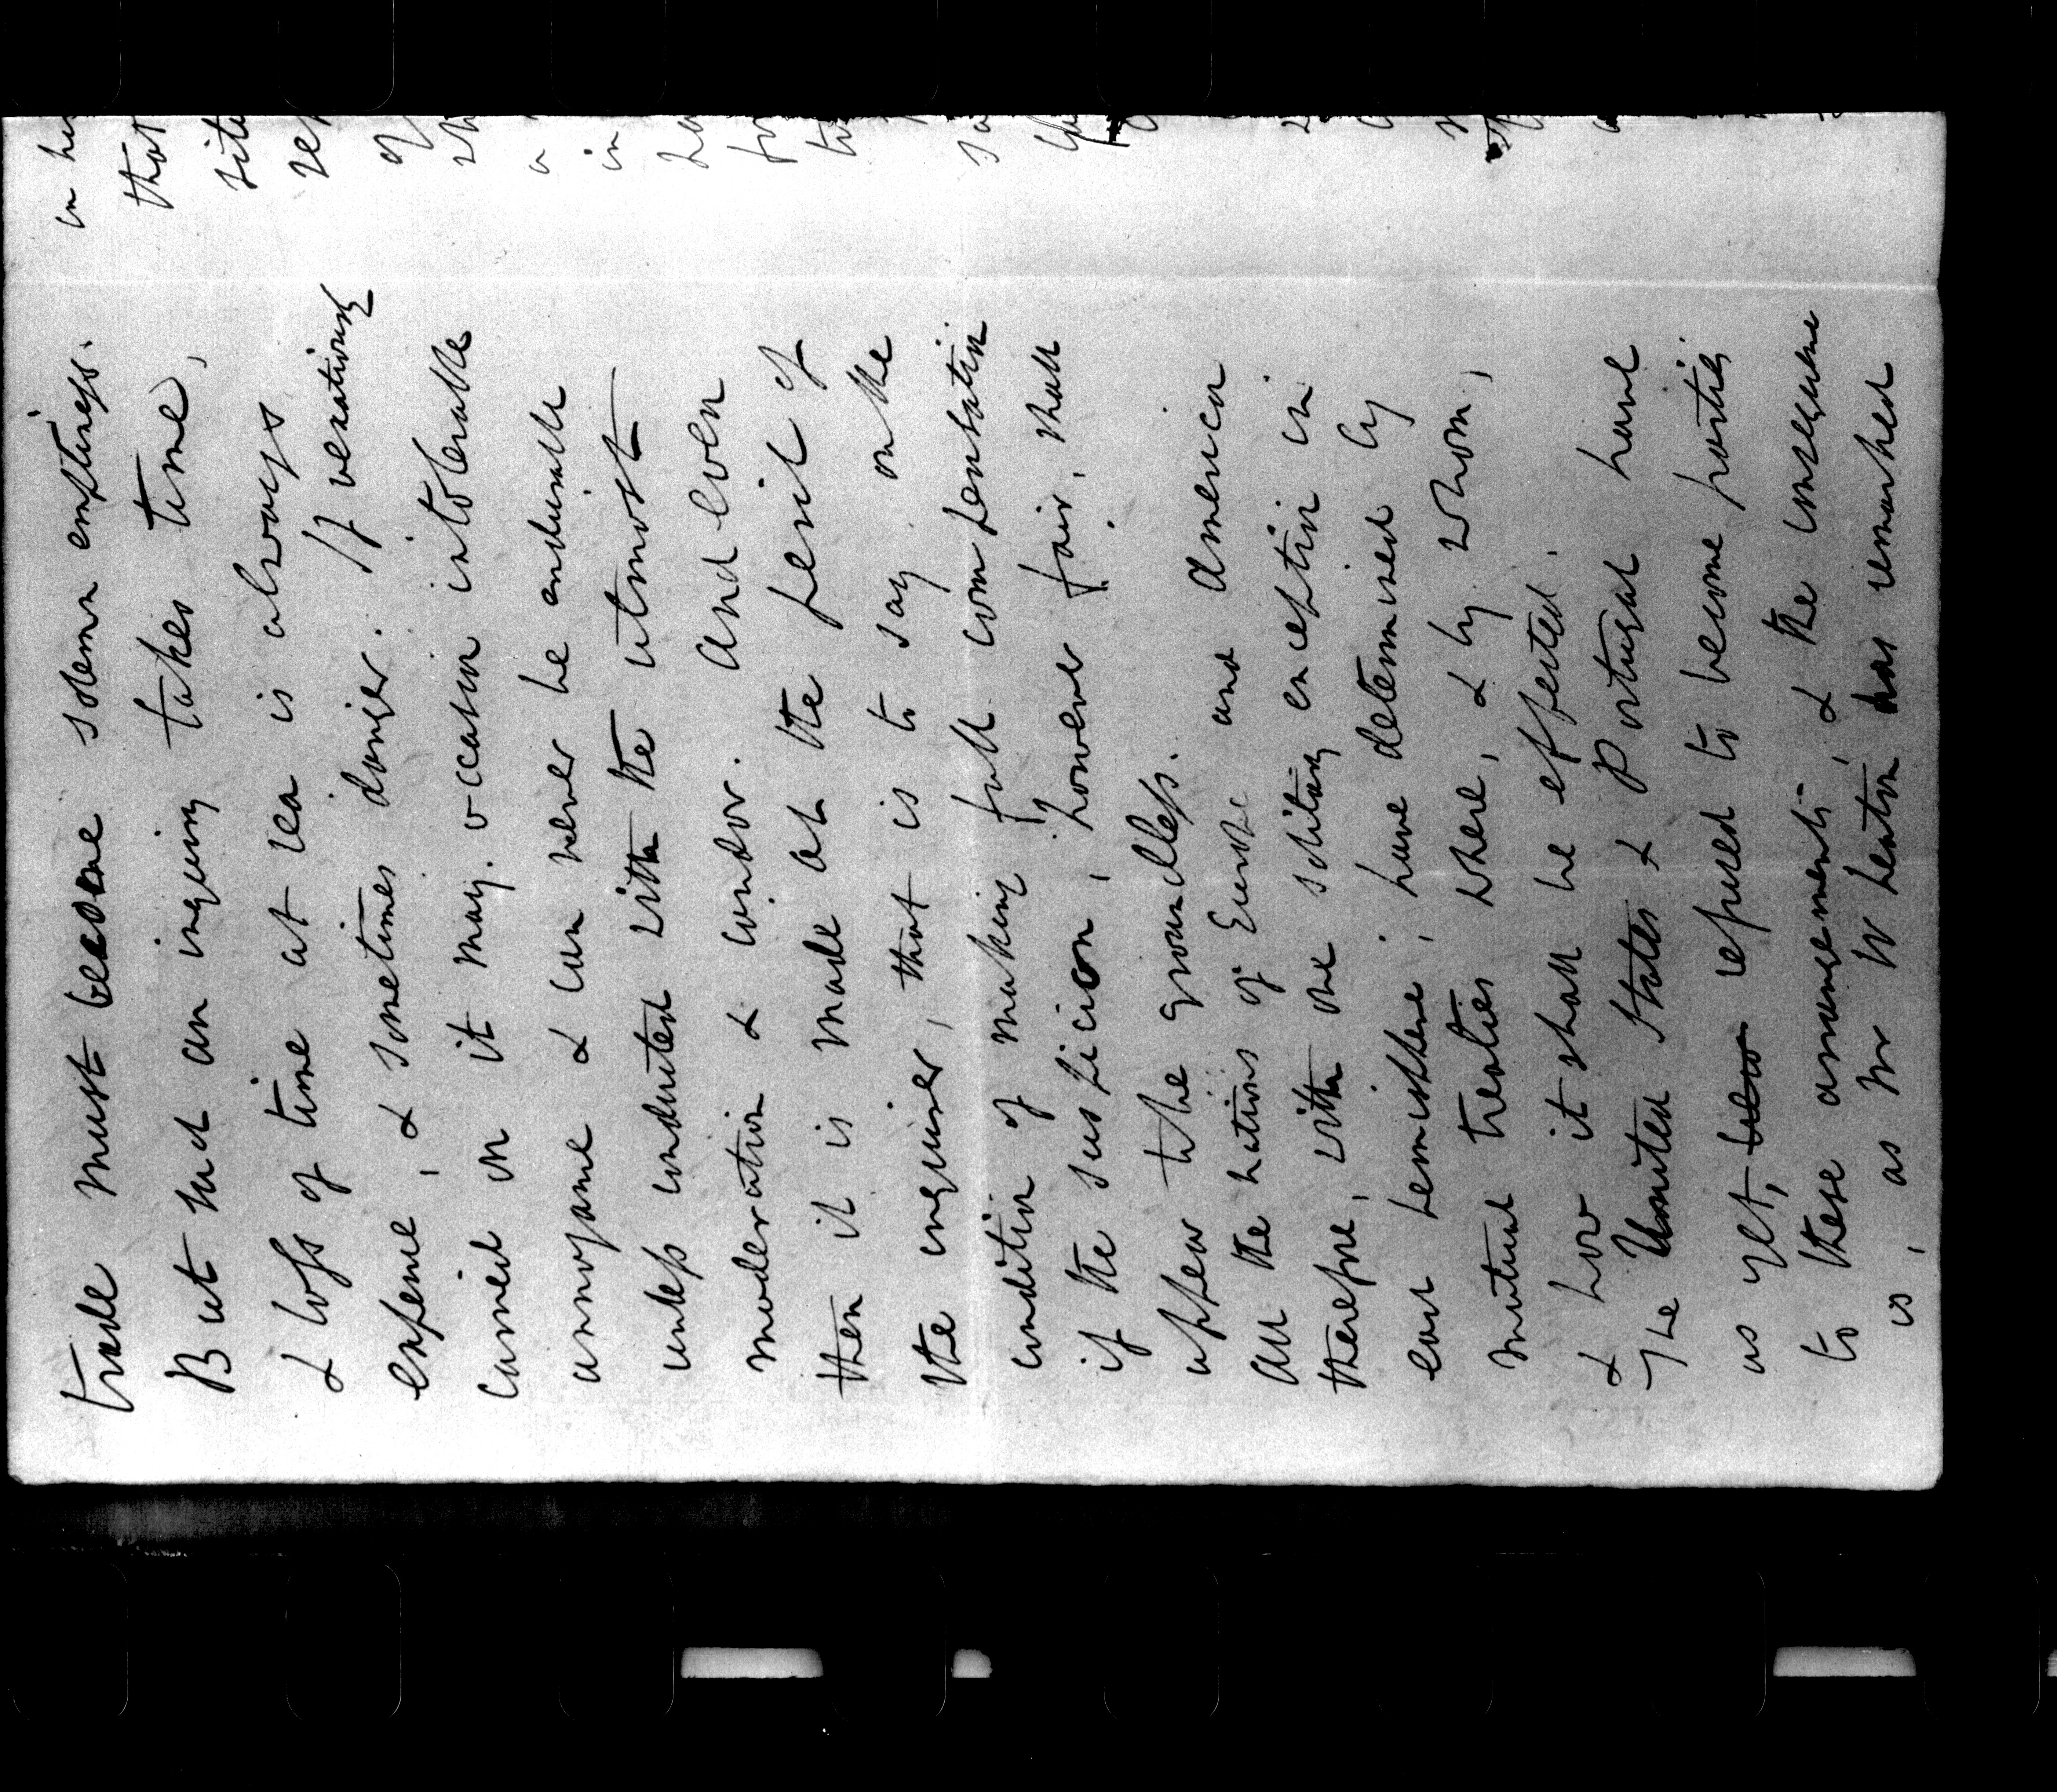 trade must become solemn emptiness.
But such an inquiry takes time,
& loss of time at sea is always
expense, & sometimes danger. If vexatiously
carried on it may occasion intolerable
annoyance & can never be endurable
unless conducted with the utmost
moderation & candor. And even
then it is made at the peril of
the inquirer, that is to say on the
condition of making full compensation
if the suspicion, however fair, shall
appear to be groundless.
All the nations of Europe and America
therefore, with one solitary exception in
each hemisphere, have determined by
mutual treaties where, & by whom,
& how it shall be effected.
The United States & Portugal have
as yet, refused to become parties
to these arrangements, & the consequence
is, as Mr Wheaton has remarked
in his
that
of
a
in